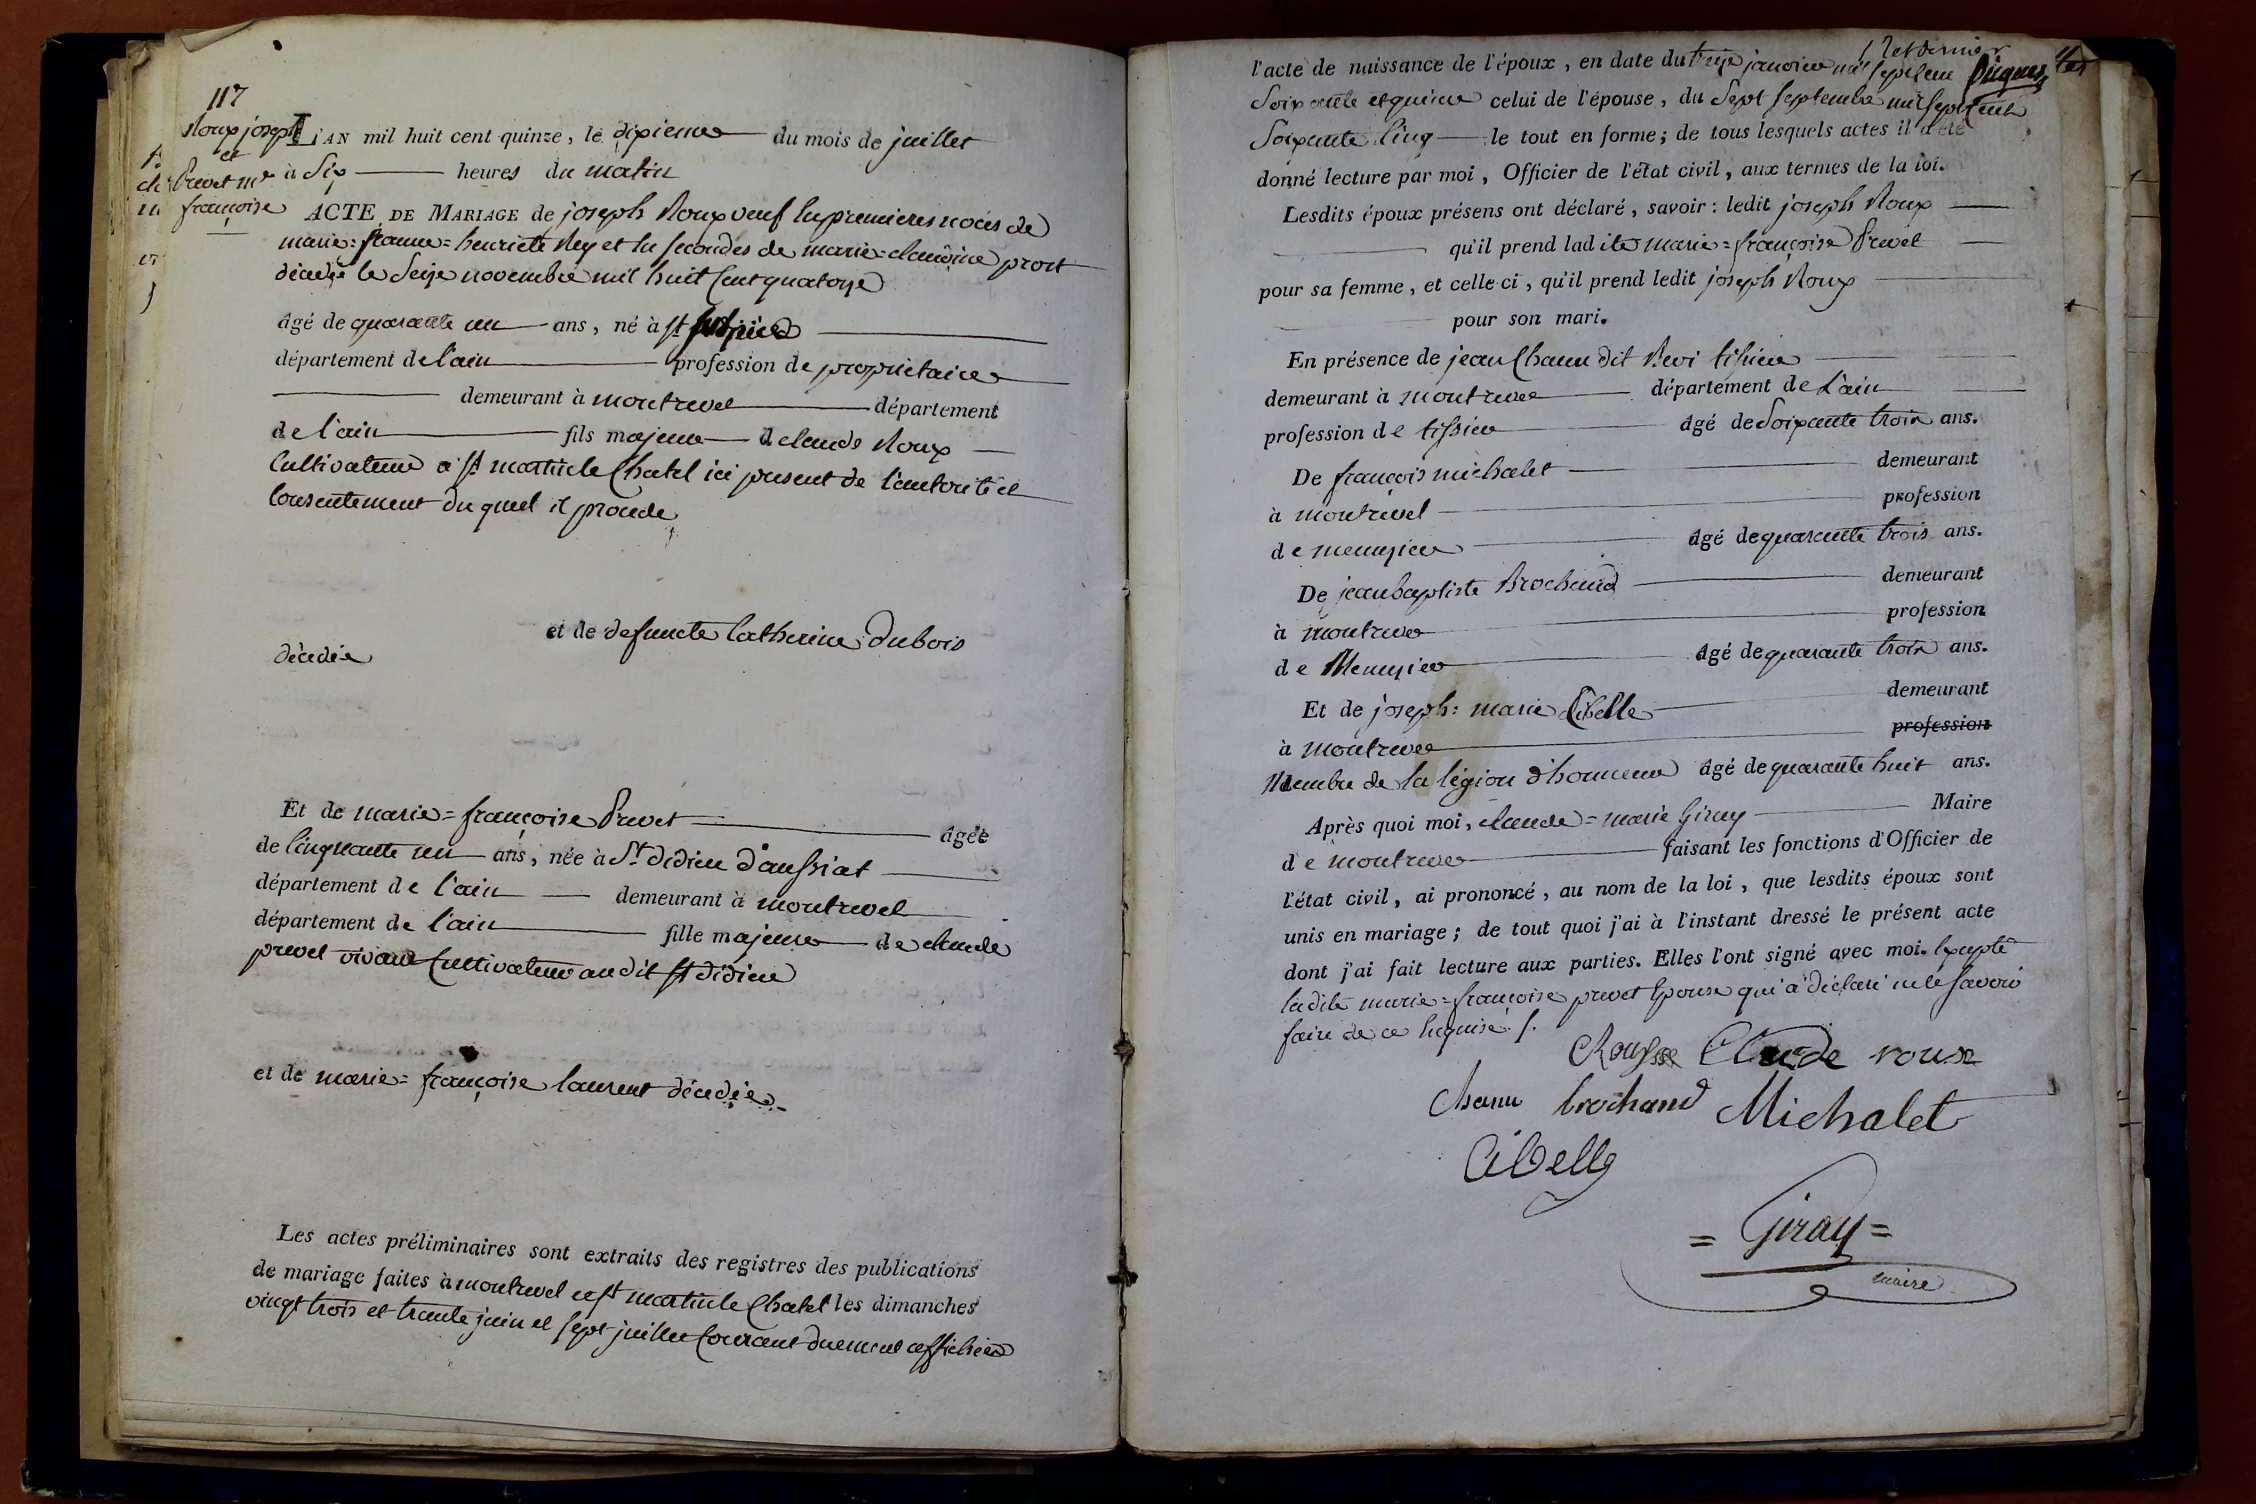 117
Roux joseph
et
Prevet me
françoise
L'AN mil huit cent quinze, le dixieme du mois de juillet
à Six heures du matin
ACTE DE MARIAGE de joseph Roux veuf en premieres noces de
marie=jeanne=henriete Rey et en secondes de marie=claudine prost
décedée le Seize novembre mil huit Cent quatorze
âgé de quarante un ans, né à st Sulpice
département de l'ain profession de proprietaire
demeurant à montrevel département
de l'ain fils majeur de claude Roux
Cultivateur a st martin le Chatel ici present de l'autorité et
Consentement du quel il procede
et de defuncte Catherine Dubois
décedée
Et de marie=françoise Prevet âgée
de Cinquante un ans, née à St. didier d'aussiat
département de l'ain demeurant à montrevel
département de l'ain fille majeure de claude
prevet vivant Cultivateur au dit st didier
et de marie=françoise laurent décedée
Les actes préliminaires sont extraits des registres des publications
de mariage faites à montrevel et st martin le Chatel les dimanches
vingt trois et trente juin et sept juillet Courant duement affichées
12et dernier
l'acte de naissance de l'époux, en date du treize janvier mil sept cent
Soixante et quinze celui de l'épouse, du Sept Septembre mil Sept Cent
Soixante Cinq le tout en forme; de tous lesquels actes il a été
donné lecture par moi, Officier de l'état civil, aux termes de la loi.
Lesdits époux présens ont déclaré, savoir: ledit joseph Roux
qu'il prend ladite marie=françoise Prevet
pour sa femme, et celle-ci, qu'il prend ledit joseph Roux
pour son mari.
En présence de jean Chanu dit Revi tissier
demeurant à montrevel département de L'ain
profession de tissier âgé de Soixante trois ans.
De françois michalet demeurant
à montrevel profession
de menuzier âgé de quarante trois ans.
De jean baptiste Brochand demeurant
à montrevel profession
de Menuzier âgé de quarante trois ans.
Et de joseph=marie Cibelle demeurant
à montrevel profession
Membre de la légion d'honneur âgé de quarante huit ans.
Après quoi moi, claude=marie Giray Maire
de montrevel faisant les fonctions d'Officier de
l'état civil, ai prononcé, au nom de la loi, que lesdits époux sont
unis en mariage; de tout quoi j'ai à l'instant dressé le présent acte
dont j'ai fait lecture aux parties. Elles l'ont signé avec moi. Excepté
ladite marie=françoise prevet Epouse qui a déclaré ne le savoir
faire de ce Requise /.
Claude roux
Chanu brochand Michalet
Cibelle
= Giray =
maire